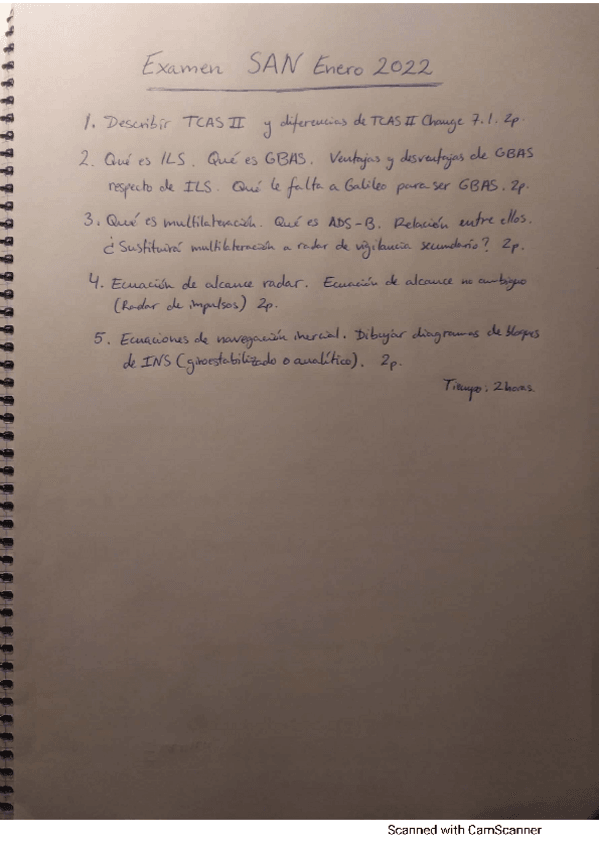 Examen SAN Enero 2022
1. Describir TCAS II y diferencias de TCAS II Change 7.1. 2p.
2. Qué es ILS. Qué es GBAS. Ventajas y desventajas de GBAS
respecto de ILS. Qué le falta a Galileo para ser GBAS. 2p.
3. Qué es multilateración. Qué es ADS-B. Relación entre ellos.
¿Sustituirá multilateración a radar de vigilancia secundario? 2p.
4. Ecuación de alcance radar. Ecuación de alcance no ambiguo
(Radar de impulsos) 2p.
5. Ecuaciones de navegación inercial. Dibujar diagramas de bloques
de INS (giroestabilizado o analítico). 2p.
Tiempo: 2 horas.
Scanned with CamScanner